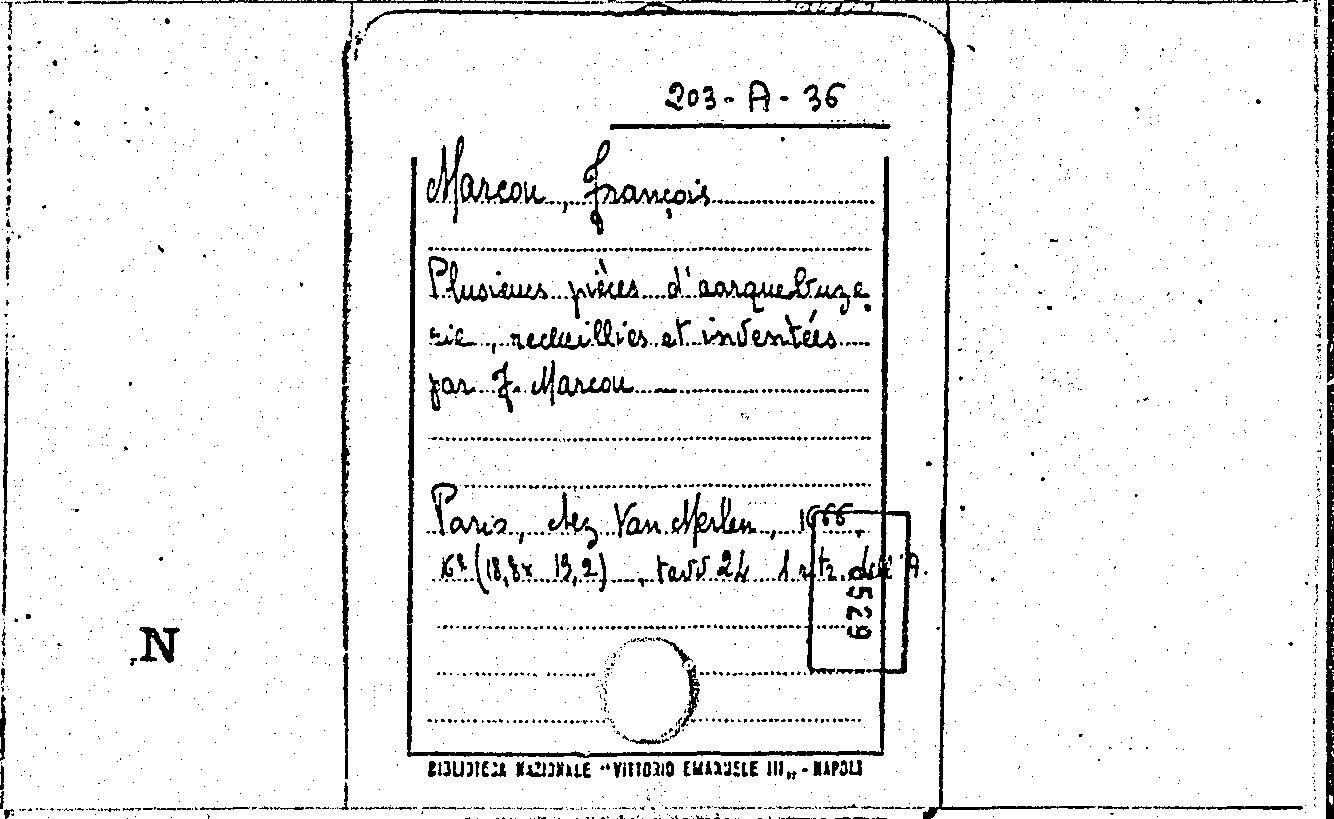 203-A-36
Marcou, François
Plusieurs pièces d'aarquebuze
rie, recueillies et inventées
par F. Marcou
Paris, chez Van Merlen, 1666.
(18,8x 13,2), tavv 24 1 ritr. dell'A.
529
N
BIBLIOTECA NAZIONALE "VITTORIO EMANUELE III„ - NAPOLI